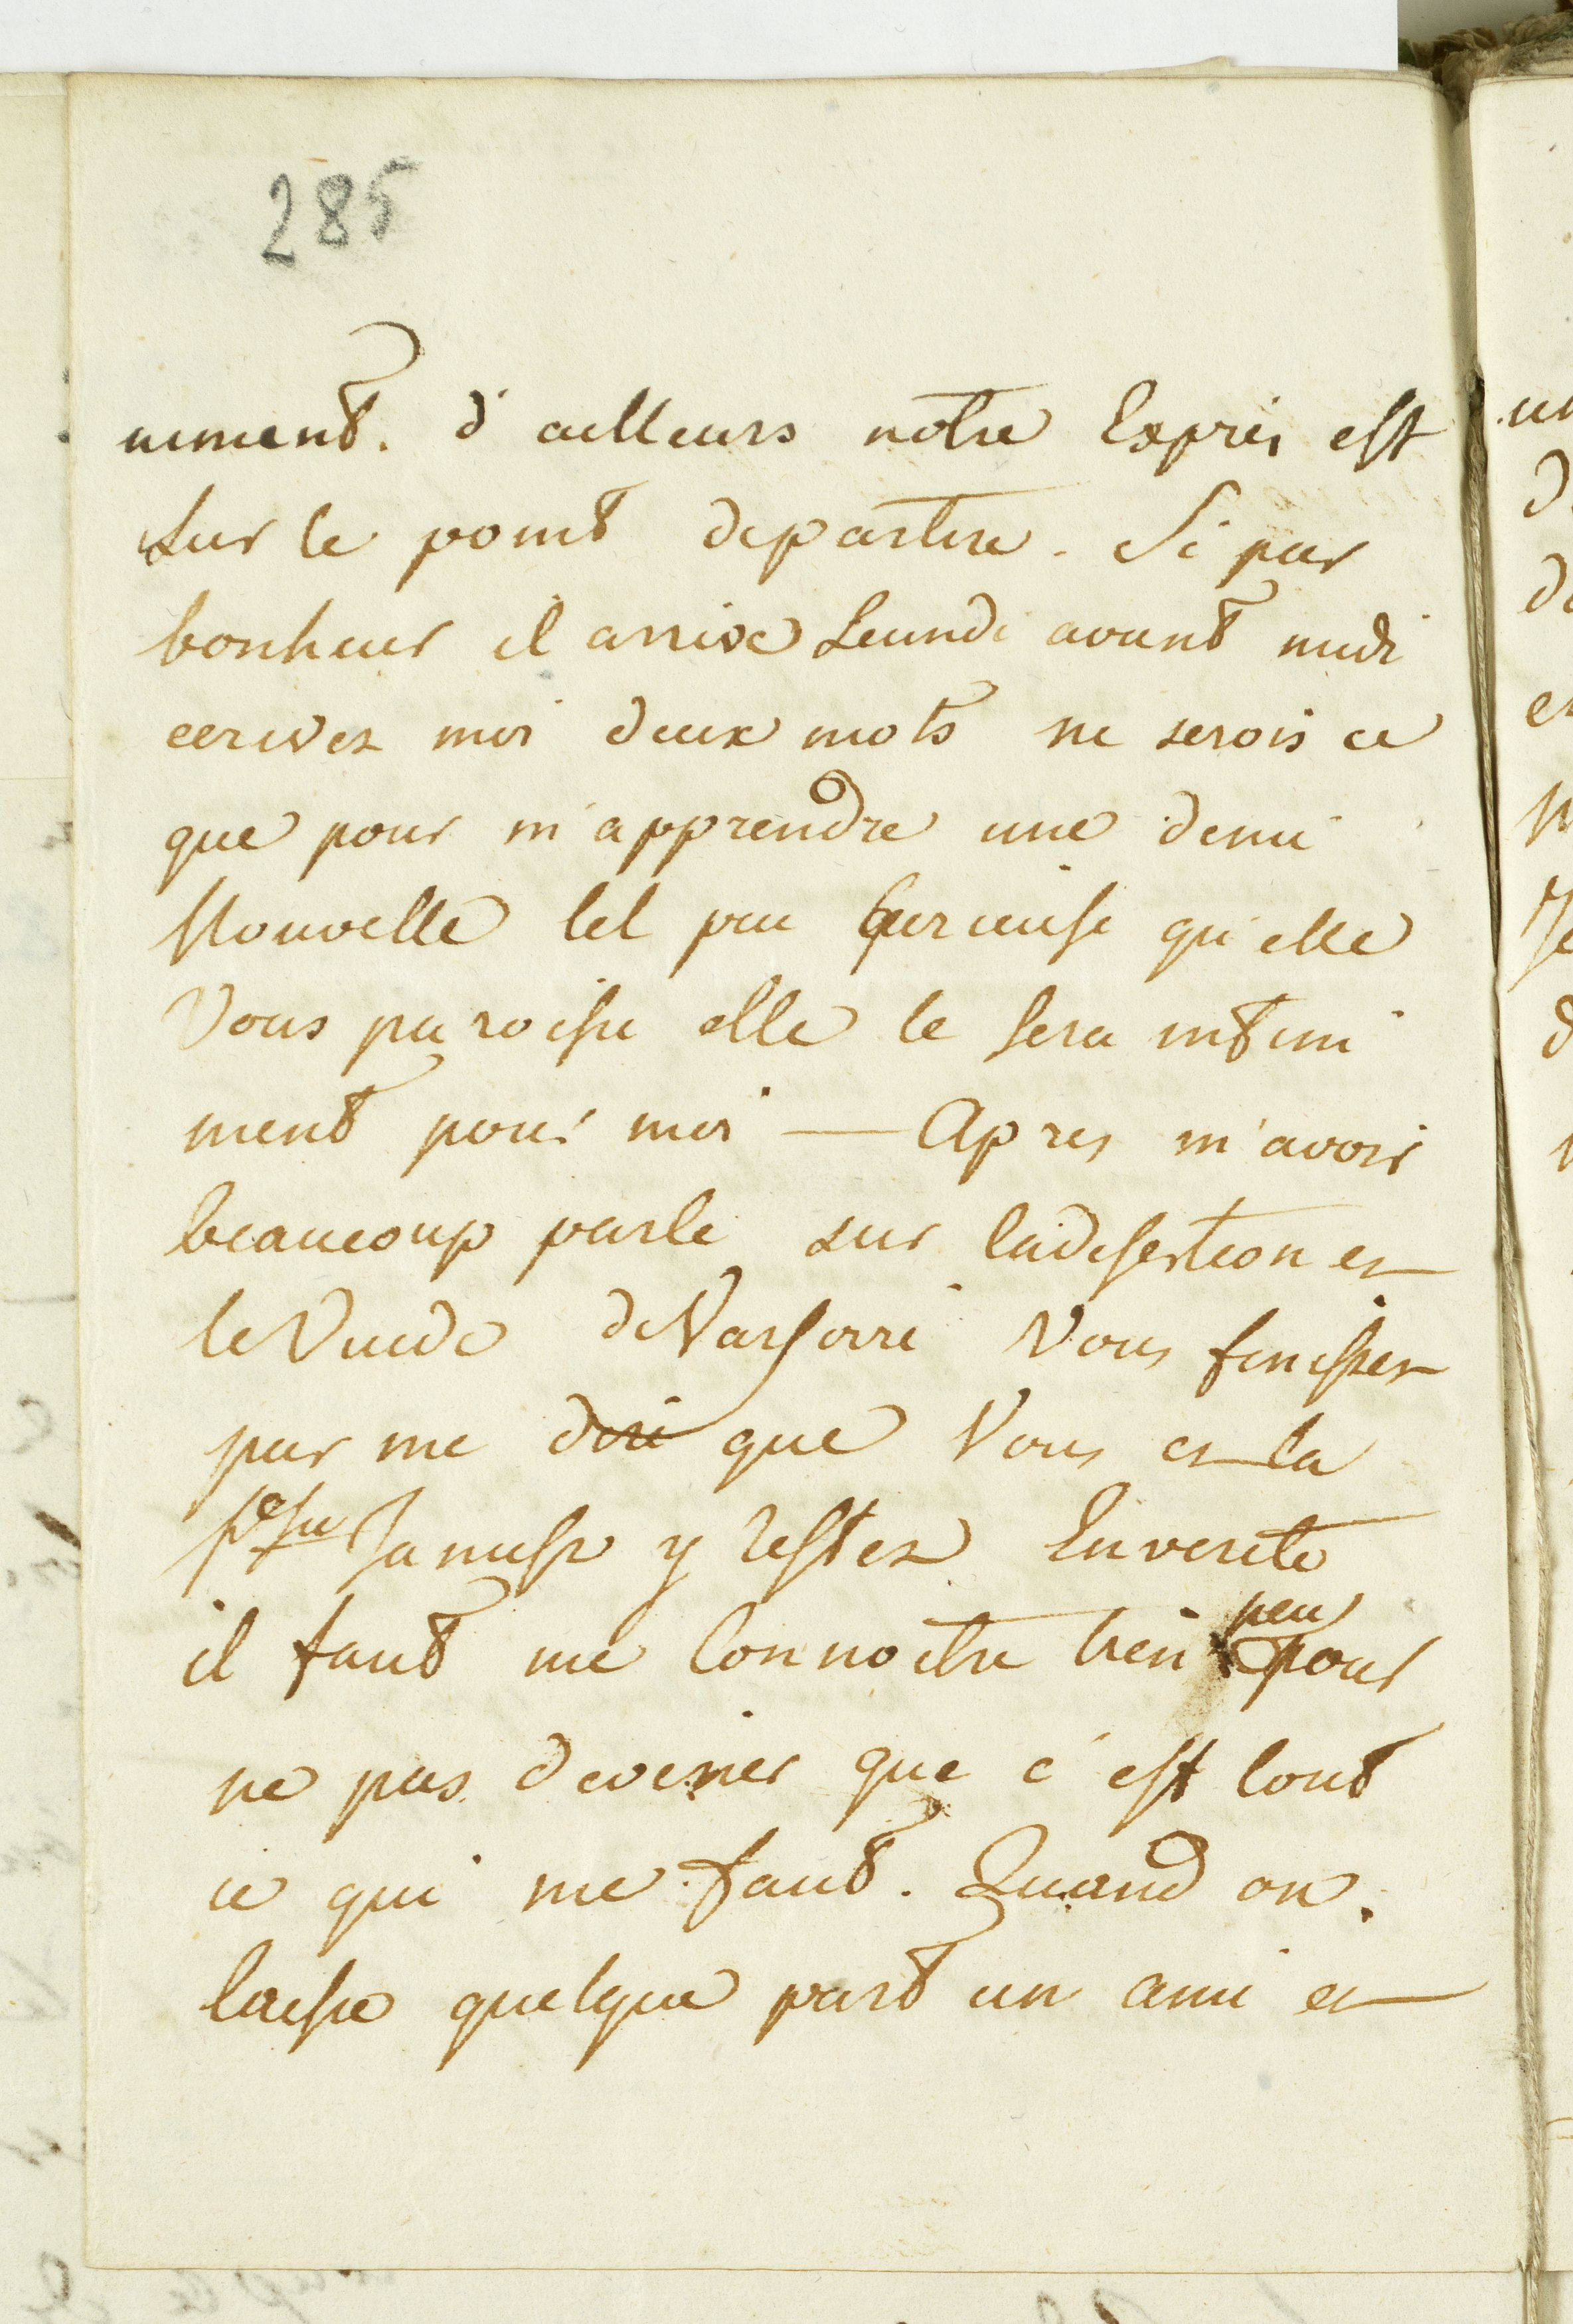 285
niment. d'ailleurs notre Exprès est
sur le point departire. Si par
bonheur il arrive Leundi avant midi
ecrivez moi deux mots ne serois ce
que pour m'apprendre une demi
Nouvelle tel peu heureuse qu'elle
Vous paroisse elle le sera infini
ment pour moi — Apres m'avoir
beaucoup parle sur la desertion et
le Vuide de Varsovie Vous finissez
par me dire que Vous et la
Psse y restez En verite
il faut me Connoitre bien peu pour
ne pas deviner que c'est tout
ce qui me faut. Quand on
laisse quelque part un ami et